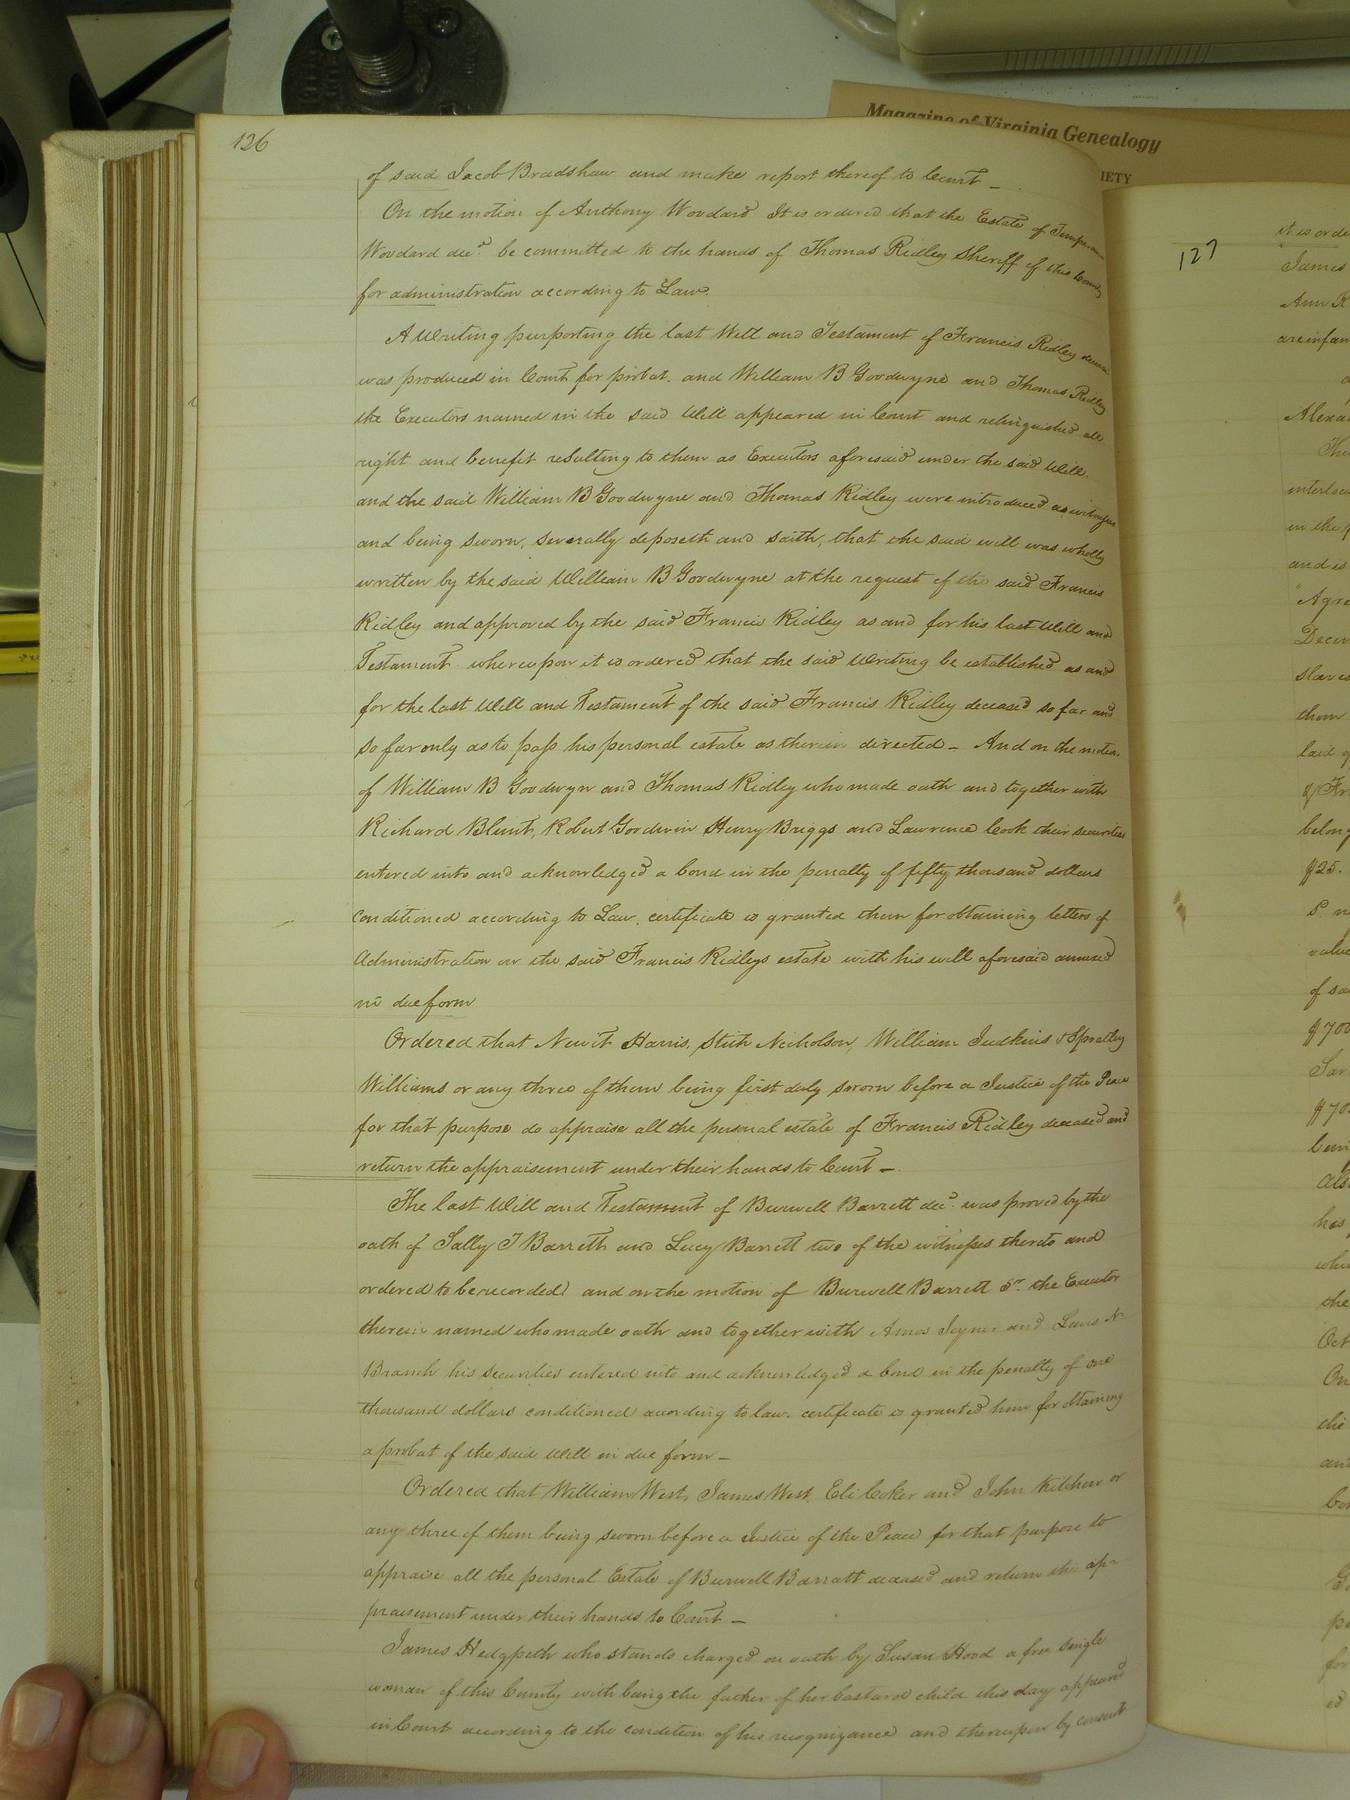 Magazine of Virginia Genealogy
IETY
126
of said Jacob Bradshaw and make report thereof to Court –
On the motion of Anthony Woodard It is ordered that the Estate of
Woodard decd. be committed to the hands of Thomas Ridley Sheriff of this County
for administration according to Law.
A Writing purporting the last Will and Testament of Francis Ridley
was produced in Court for probat. and William B Goodwyne and Thomas Ridley
the Executors named in the said Will appeared in Court and relinquished all
right and benefit resulting to them as Executors aforesaid under the said Will.
and the said William B Goodwyne and Thomas Ridley were introduced as witnesses
and being sworn, severally deposeth and saith, that the said will was wholly
written by the said William B Goodwyne at the request of the said Francis
Ridley and approved by the said Francis Ridley as and for his last Will and
Testament whereupon it is ordered that the said Writing be established as and
for the last Will and Testament of the said Francis Ridley deceased so far and
so far only as to pass his personal estate as therein directed – And on the motion
of William B Goodwyn and Thomas Ridley who made oath and together with
Richard Blunt, Robert Goodwin Henry Briggs and Lawrence Cook their securities
entered into and acknowledged a bond in the penalty of fifty thousand dollars
conditioned according to Law. certificate is granted them for obtaining letters of
administration on the said Francis Ridleys estate with his will aforesaid annexed
in due form
Ordered that Newit Harris, Stith Nicholson, William Judkins & Spratley
Williams or any three of them being first duly sworn before a Justice of the Peace
for that purpose do appraise all the personal estate of Francis Ridley deceased and
return the appraisement under their hands to Court –
The last Will and Testament of Burwell Barrett decd. was proved by the
oath of Sally T Barrett and Lucy Barrett two of the witnesses thereto and
ordered to be recorded and on the motion of Burwell Barrett Sr. the Executor
therein named who made oath and together with Amos Joyner and Lewis N
Branch his securities entered into and acknowledged a bond in the penalty of one
thousand dollars conditioned according to law. certificate is granted him for obtaining
a probat of the said Will in due form –
Ordered that William West, James West, Eli Coker and John Kitchen or
any three of them being sworn before a Justice of the Peace for that purpose to
appraise all the personal Estate of Burwell Barratt deceased and return the ap=
praisement under their hands to Court –
James Hedgpeth who stands charged on oath by Susan Hood a free single
woman of this County with being the father of her bastard child this day appeared
in Court according to the condition of his recognizance and thereupon by consent
127
it is orde
James
Ann R
are infan
Alexa
The
interloc
in the p
and is
"Agre
Decem
slaves
them
laid
of Fr
belong
$25.
value
of sa
$700
Sar
$70
being
also
has
who
the
Oct
On
the
and